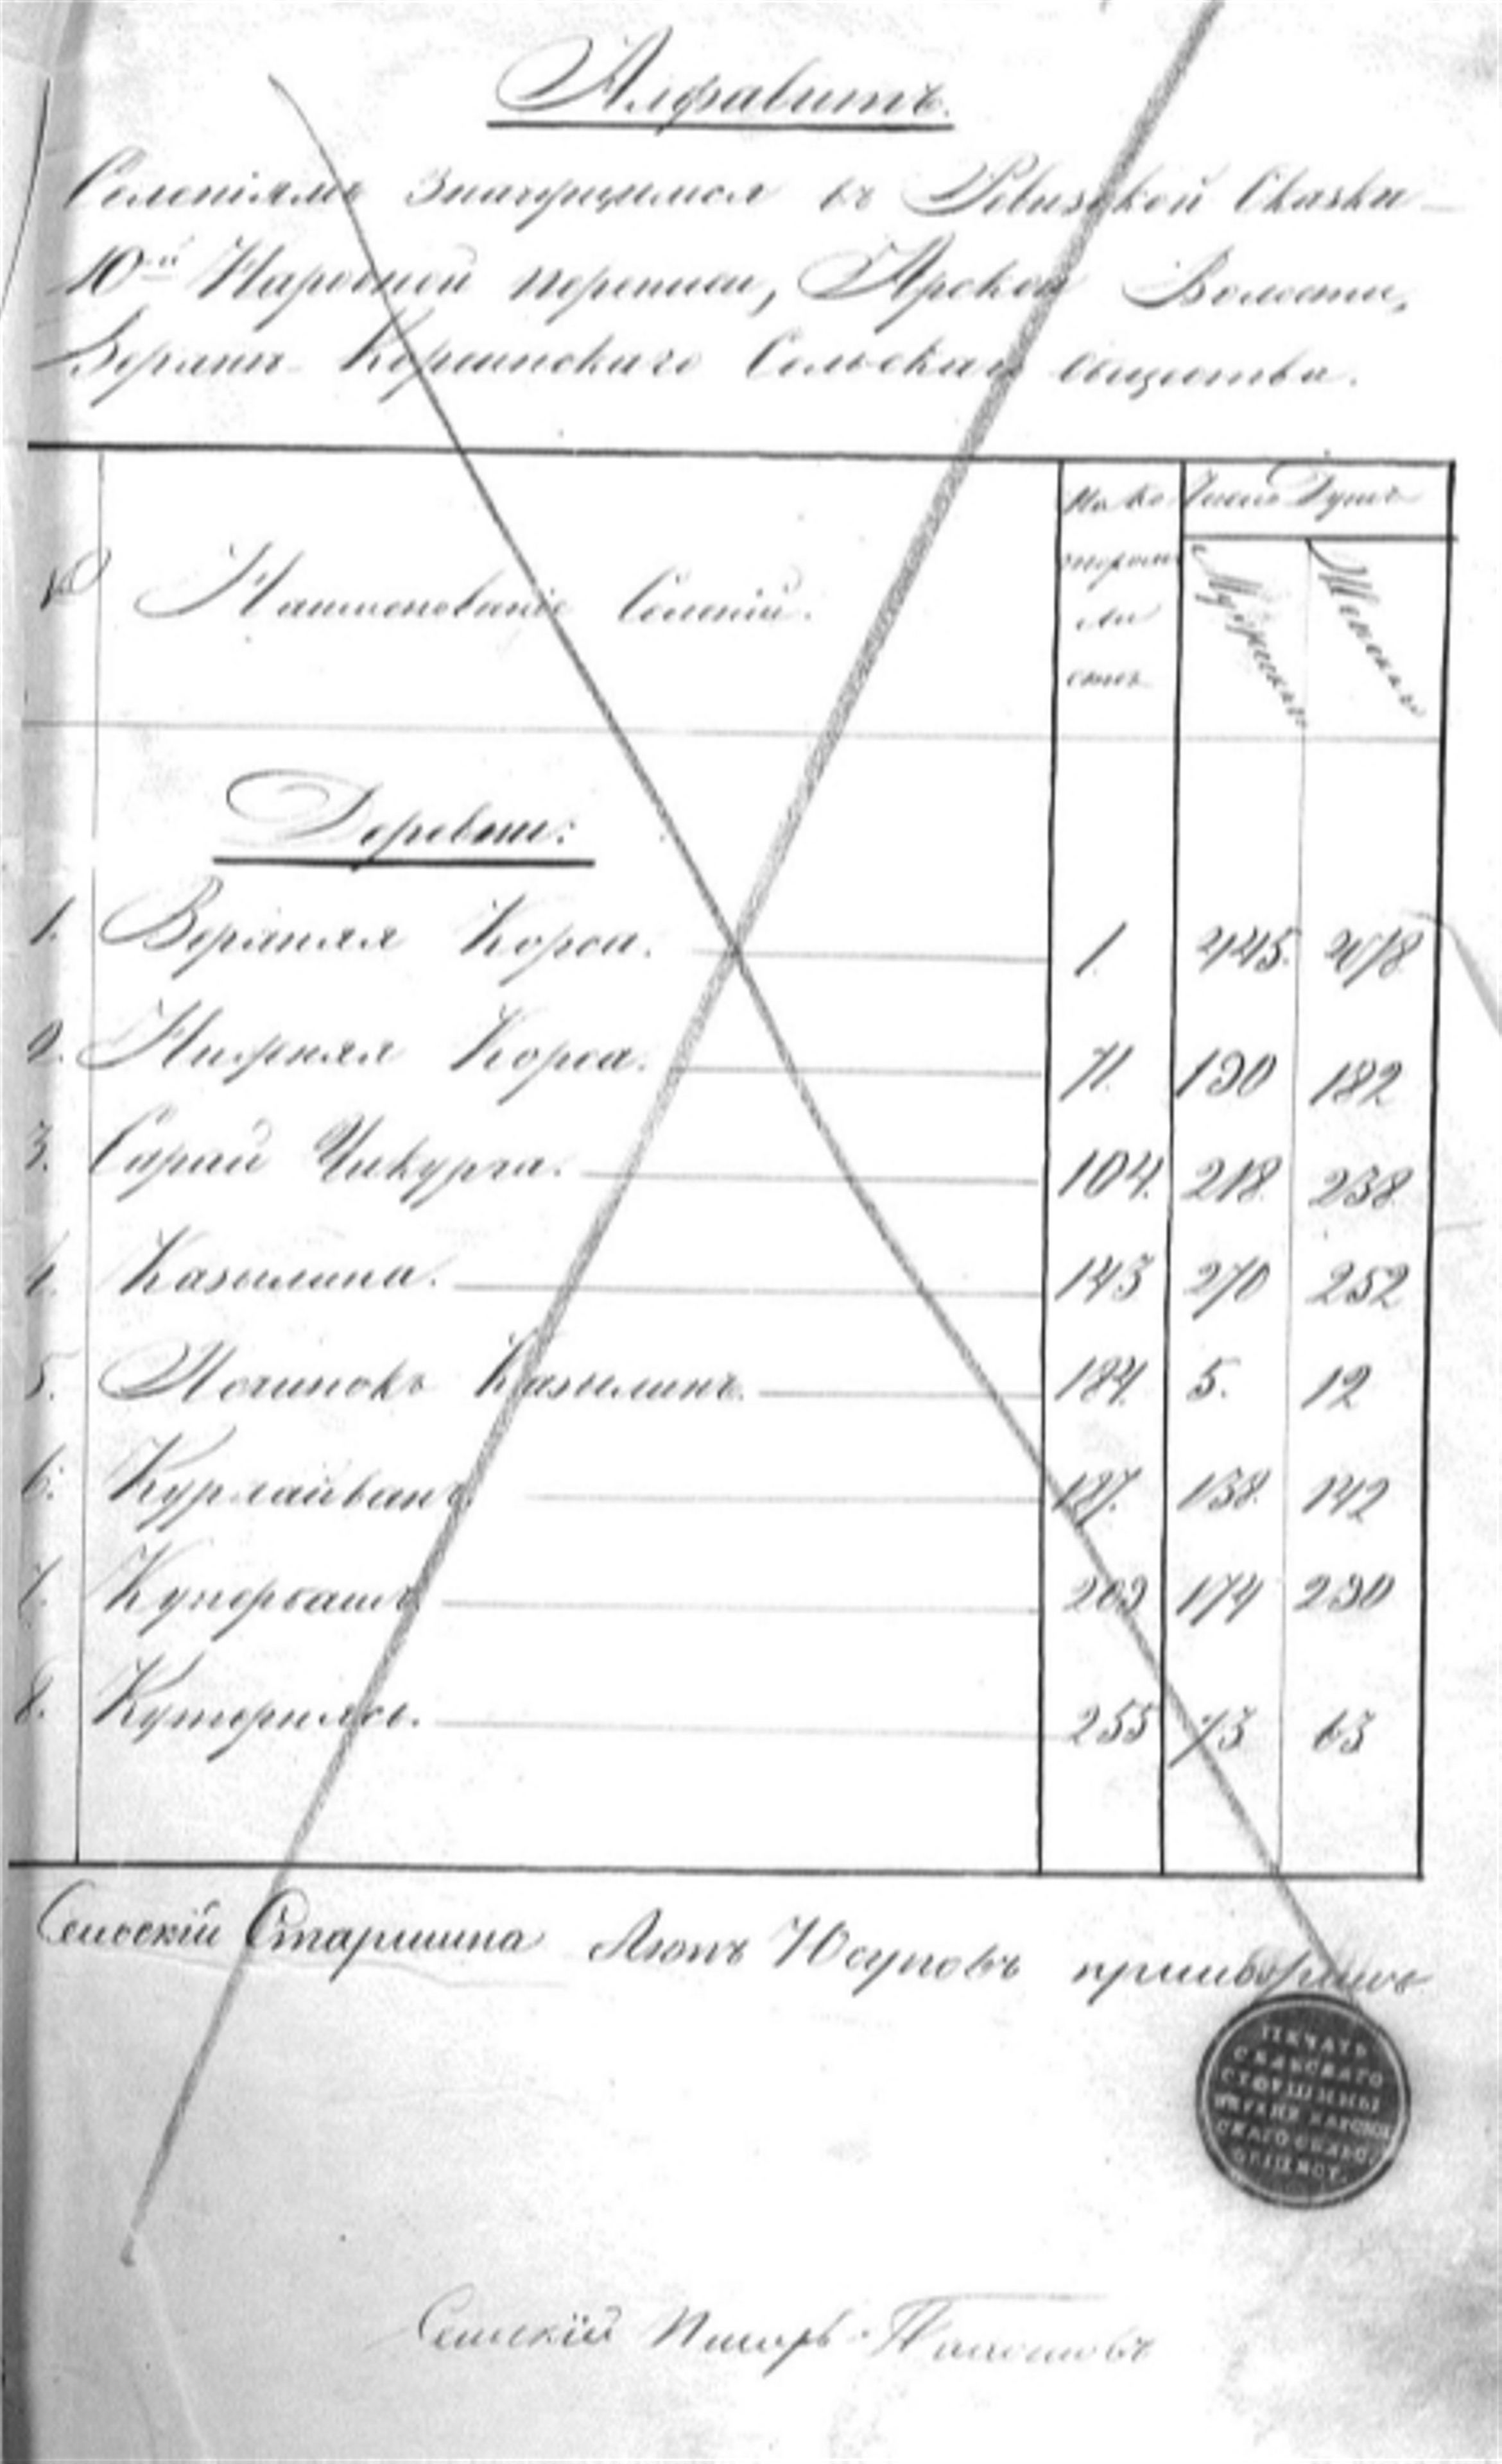 Алфавитъ.
Селеніямъ значущимся въ Ревизской Сказки
10й Народной переписи, Арской Волости,
Верхне-Корсинскаго Сельскаго общества.
№ Наименованіе Селеній. На ко тором ли стѣ Число Душъ Мужескихъ Женскихъ
Деревни:
1. Верхняя Корса. 1. 445. 478
2. Нижняя Корса. 71. 190 182
3. Сарай Чикурга. 104. 218. 238
4. Казылина. 143 270 252
5. Починокъ Казылинъ. 184. 5. 12
6. Курлайванъ. 187. 138. 142
7. Купербашъ. 209 174 230
8. Кутернясь. 255 73 63
Сельскій Старшина Аюпъ Юсуповъ
ПЕЧАТЬ
СЕЛЬСКАГО
СТАРШИНЫ
ВЕРХНЕ КАРСИН
СКАГО СЕЛЬС
ОБЩЕСТ.
Сельскій Писарь